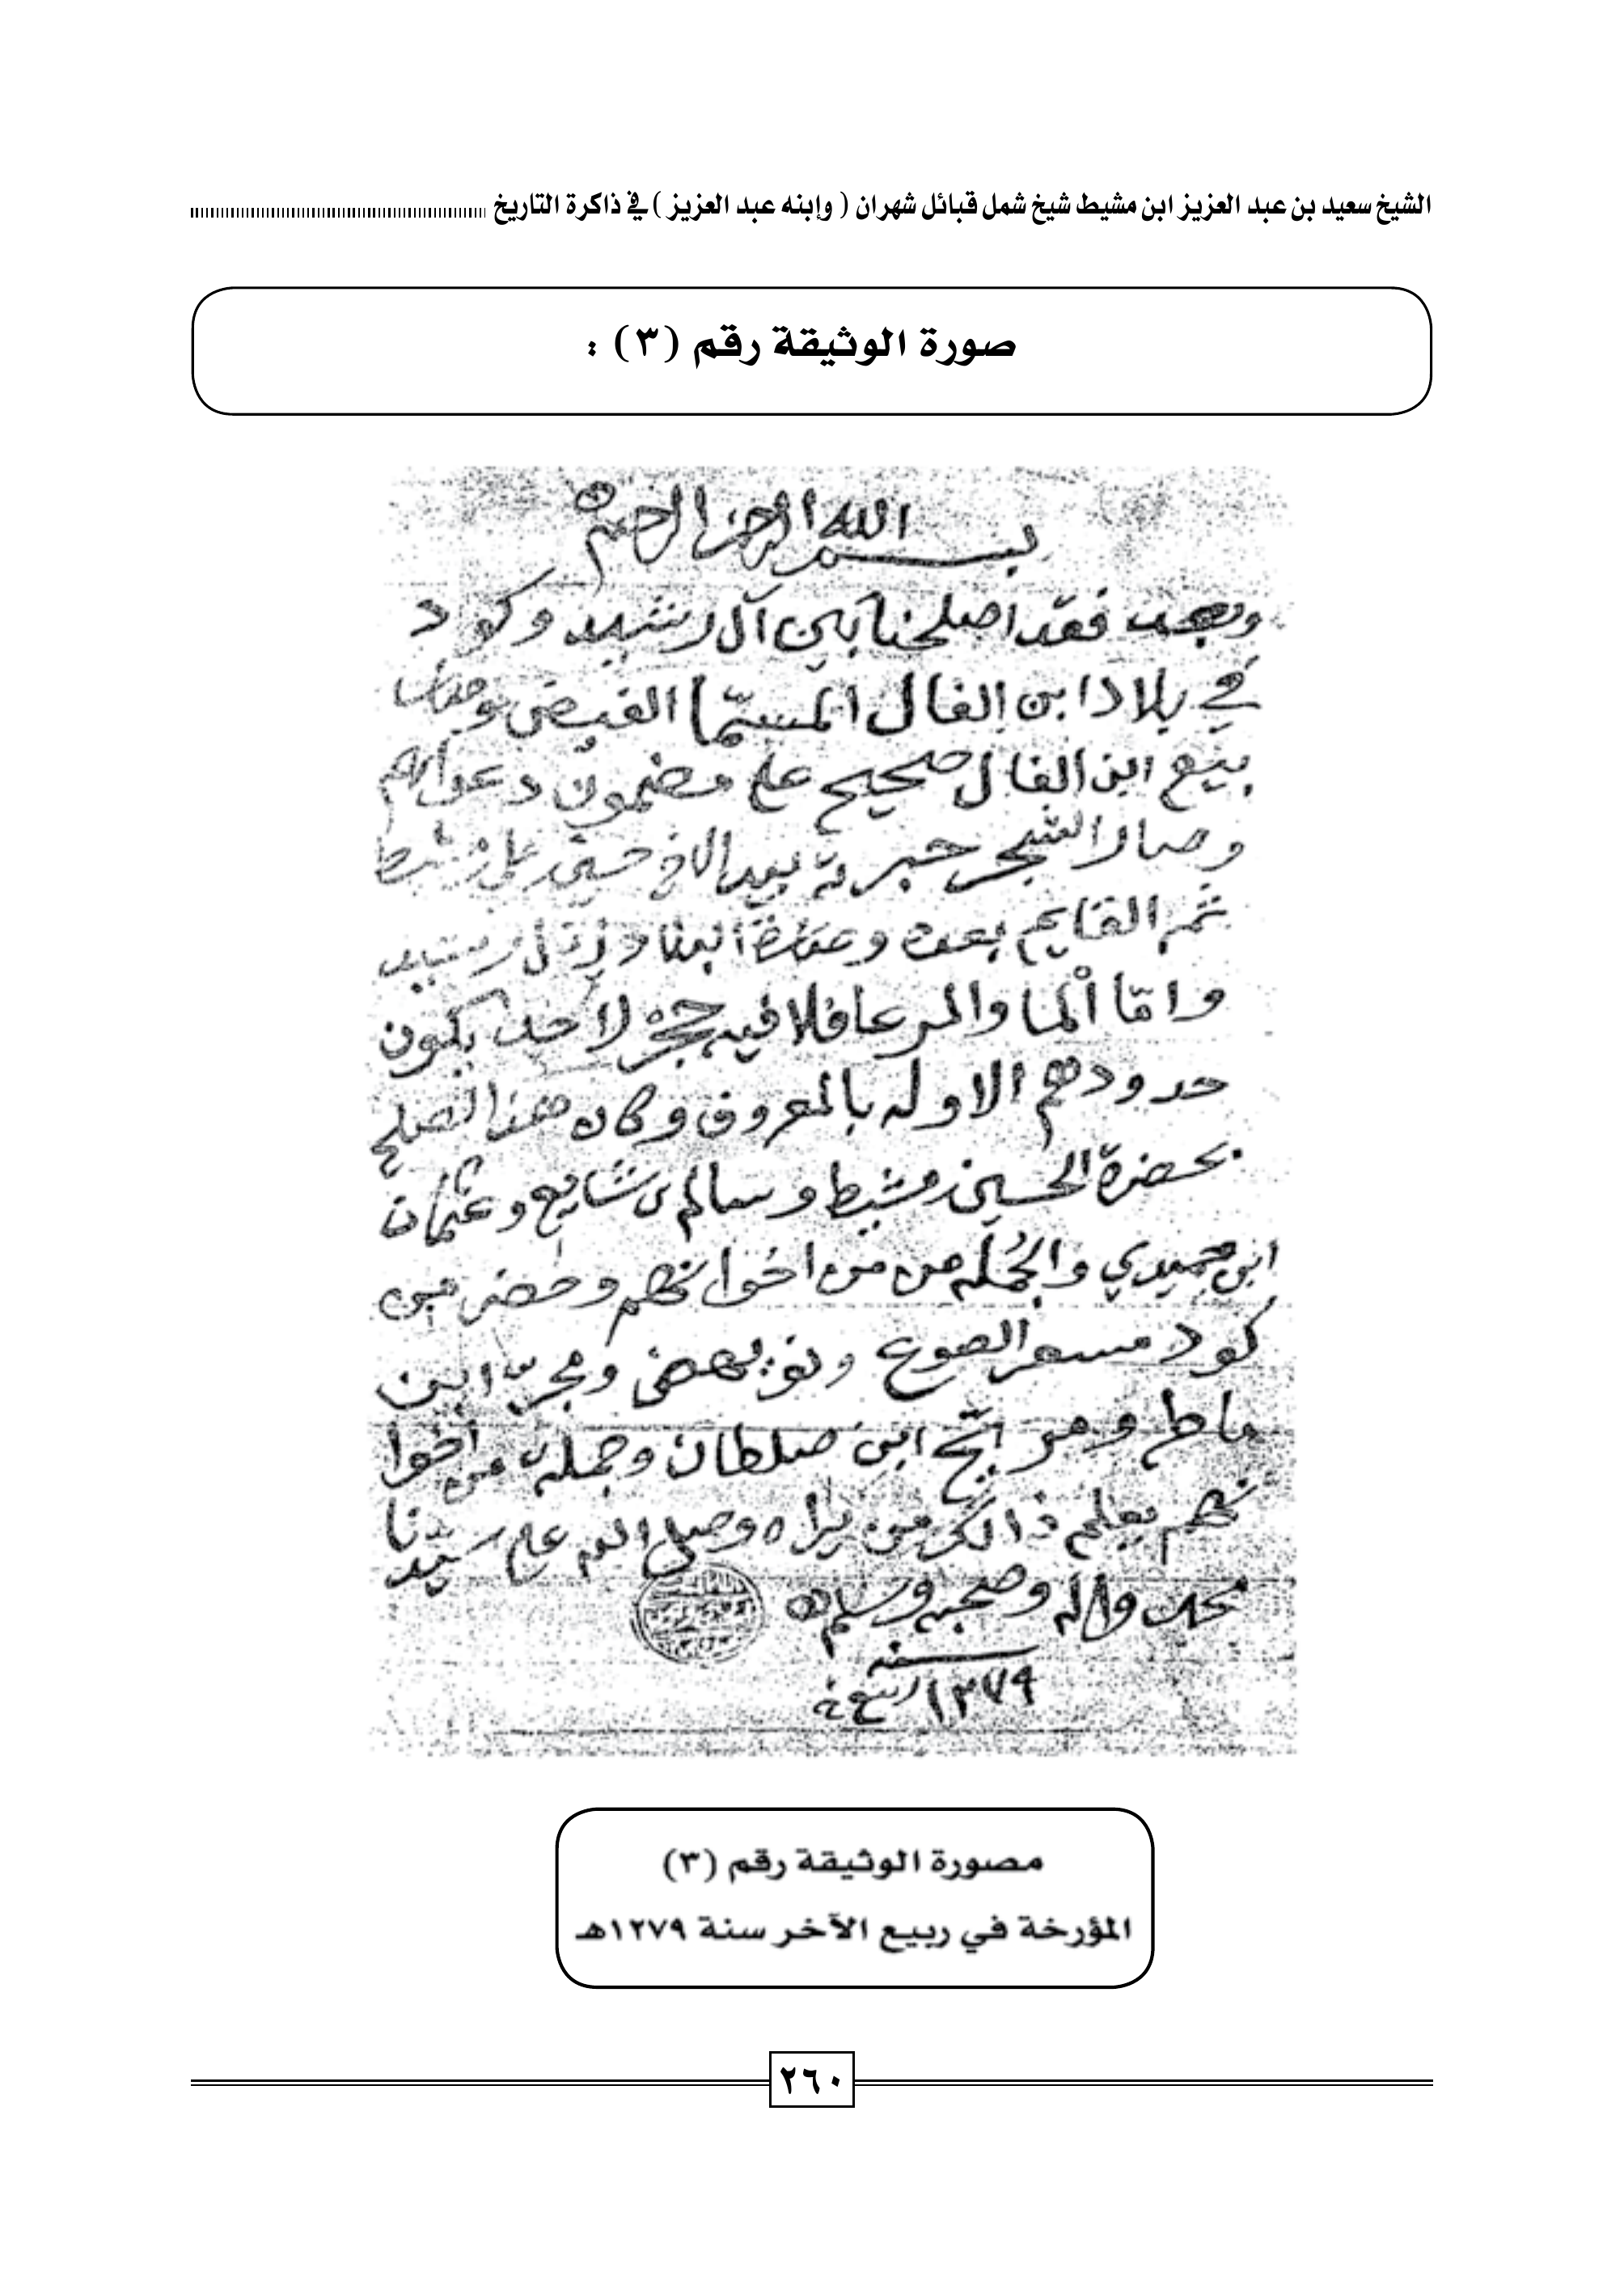 الشيخ سعيد بن عبد العزيز ابن مشيط شيخ شمل قبائل شهران ( وإبنه عبد العزيز ) في ذاكرة التاريخ
صورة الوثيقة رقم (٣) :
بسم الله الرحمن الرحيم
وبعد فقد اصلحنا بين آل رشيد وكود
في بلاد ابن الفال المسما الفيض
بيع ابن الفال صحيح على مضمون دعواهم
وصار الشجر حبر بيد الاخ حسين بن مشيط
ثم القايم بعده رشيد
وامّا ألما والمرعا فلا فيه حجره لاحد يكون
حدودهم الاوله بالمعروف وكان هذا الصلح
بحضرة الحسين بن مشيط وسالم بن شايع وعثمان
ابن حميدي والجُمله من من اخوانهم وحضر من
كود مسفر الصوع وبعض ابن
ماطر ابن صلطان وجمله من اخوا
نهم يعلم ذالك من يراه وصلى الله على سيدنا
محمد واله وصحبه وسلم
سنه
١٢٧٩ ربيع
مصورة الوثيقة رقم (٣)
المؤرخة في ربيع الآخر سنة ١٢٧٩هـ
٢٦٠